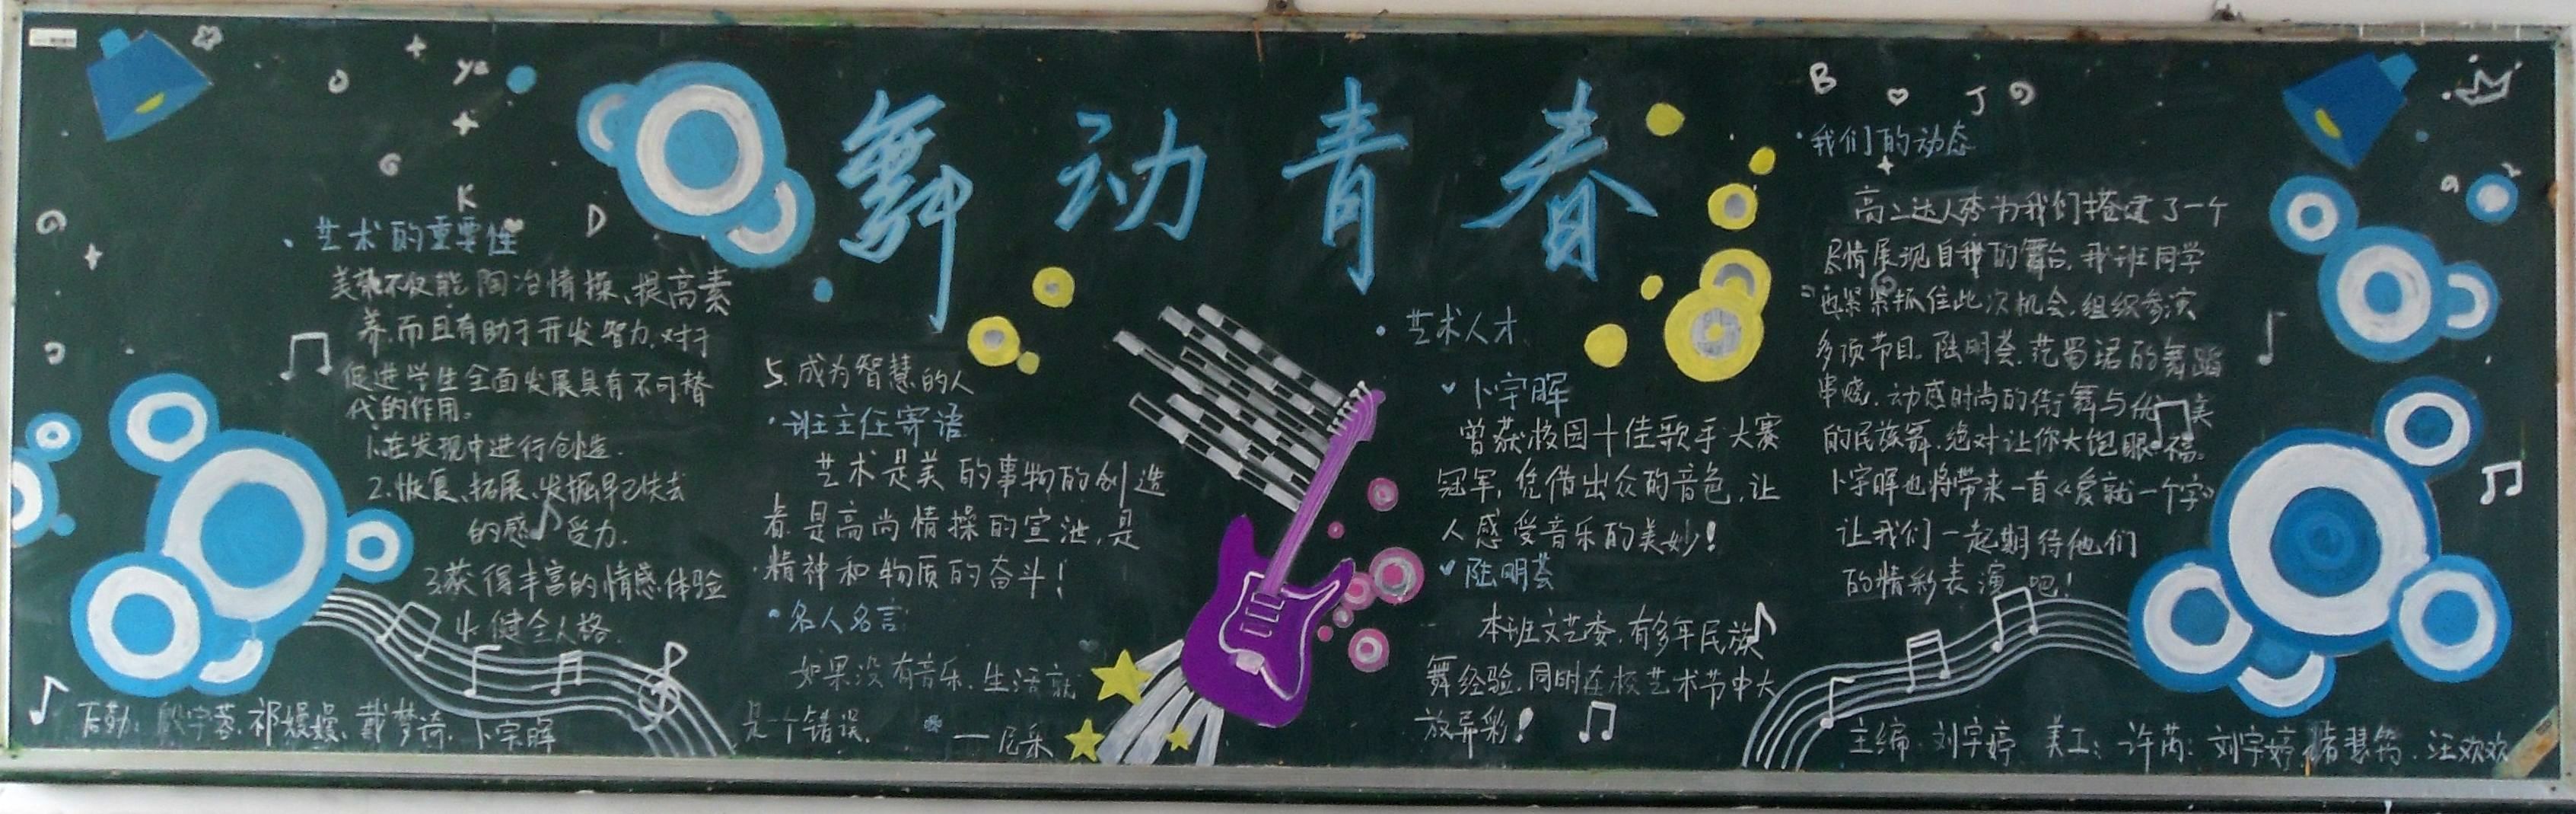 舞动青春
ya
K
D
B
J
·艺术的重要性
美术不仅能陶冶情操、提高素
养,而且有助于开发智力,对于
促进学生全面发展具有不可替
代的作用。
1.在发现中进行创造.
2.恢复、拓展、发掘早已失去
的感受力.
3.获得丰富的情感体验
4.健全人格.
后勤: 殷宇蓉、祁嫚嫚、戴梦琦、卜宇晖
5.成为智慧的人
·班主任寄语
艺术是美的事物的创造
者.是高尚情操的宣泄,是
精神和物质的奋斗!
·名人名言
如果没有音乐.生活就
是一个错误.
一尼采
·艺术人才
卜宇晖
曾获校园十佳歌手大赛
冠军,凭借出众的音色,让
人感受音乐的美妙!
陆明荟
本班文艺委,有多年民族
舞经验.同时在校艺术节中大
放异彩!
·我们的动态
高二达人秀为我们搭建了一个
尽情展现自我的舞台,我班同学
也紧紧抓住此次机会.组织参演
多项节目.陆明荟.范蜀珺的舞蹈
串烧.动感时尚的街舞与优美
的民族舞.绝对让你大饱眼福。
卜宇晖也将带来一首《爱就一个字》
让我们一起期待他们
的精彩表演吧!
主编.刘宇婷 美工: 许芮: 刘宇婷 汪欢欢